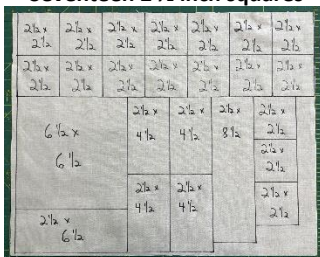 Seventeen 2 ½ inch squares
2½ x 2½ x 2½ x 2½ x 2½ x 2½ x 2½ x
2½ 2½ 2½ 2½ 2½ 2½ 2½
2½ x 2½ x 2½ x 2½ x 2½ x 2½ x 2½ x
2½ 2½ 2½ 2½ 2½ 2½ 2½
6½ x
6½
2½ x
4½
2½ x
4½
2½ x
8½
2½ x
2½
2½ x
2½
2½ x
4½
2½ x
4½
2½ x
2½
2½ x
6½